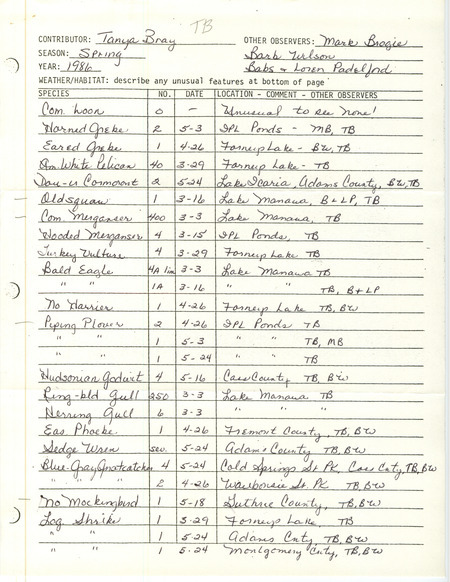 TB
CONTRIBUTOR: Tanya Bray OTHER OBSERVERS: Mark Brogie
SEASON: Spring Barb Wilson
YEAR: 1986 Babs & Loren Padelford
WEATHER/HABITAT: describe any unusual features at bottom of page
SPECIES NO. DATE LOCATION - COMMENT - OTHER OBSERVERS
Com Loon 0 - Unusual to see none!
Horned Grebe 2 5-3 IPL Ponds - MB, TB
Eared Grebe 1 4-26 Forneys Lake - BW, TB
Am White Pelican 40 3-29 Forneys Lake - TB
Dou-cr Cormorant 2 5-24 Lake Icaria, Adams County, BW, TB
Oldsquaw 1 3-16 Lake Manawa, B+LP, TB
Com Merganser 400 3-3 Lake Manawa, TB
Hooded Merganser 4 3-15 IPL Ponds, TB
Turkey Vulture 4 3-29 Forneys Lake TB
Bald Eagle 4A 1im 3-3 Lake Manawa TB
" " 1A 3-16 " TB, B+LP
No Harrier 1 4-26 Forneys Lake TB, BW
Piping Plover 2 4-26 IPL Ponds TB
" " 1 5-3 " " TB, MB
" " 1 5-24 " " TB
Hudsonian Godwit 4 5-16 Cass County TB, BW
Ring-bld Gull 250 3-3 Lake Manawa TB
Herring Gull 6 3-3 " " "
Eas Phoebe 1 4-26 Fremont County, TB, BW
Sedge Wren sev. 5-24 Adams County TB, BW
Blue-Gray Gnatcatcher 4 5-24 Cold Springs St PK, Cass Cnty, TB, BW
" " " 2 4-26 Waubonsie St PK TB, BW
No Mockingbird 1 5-18 Guthrie County, TB, BW
Log Shrike 1 3-29 Forneys Lake, TB
" " 1 5-24 Adams Cnty TB, BW
" " 1 5-24 Montgomery Cnty, TB, BW